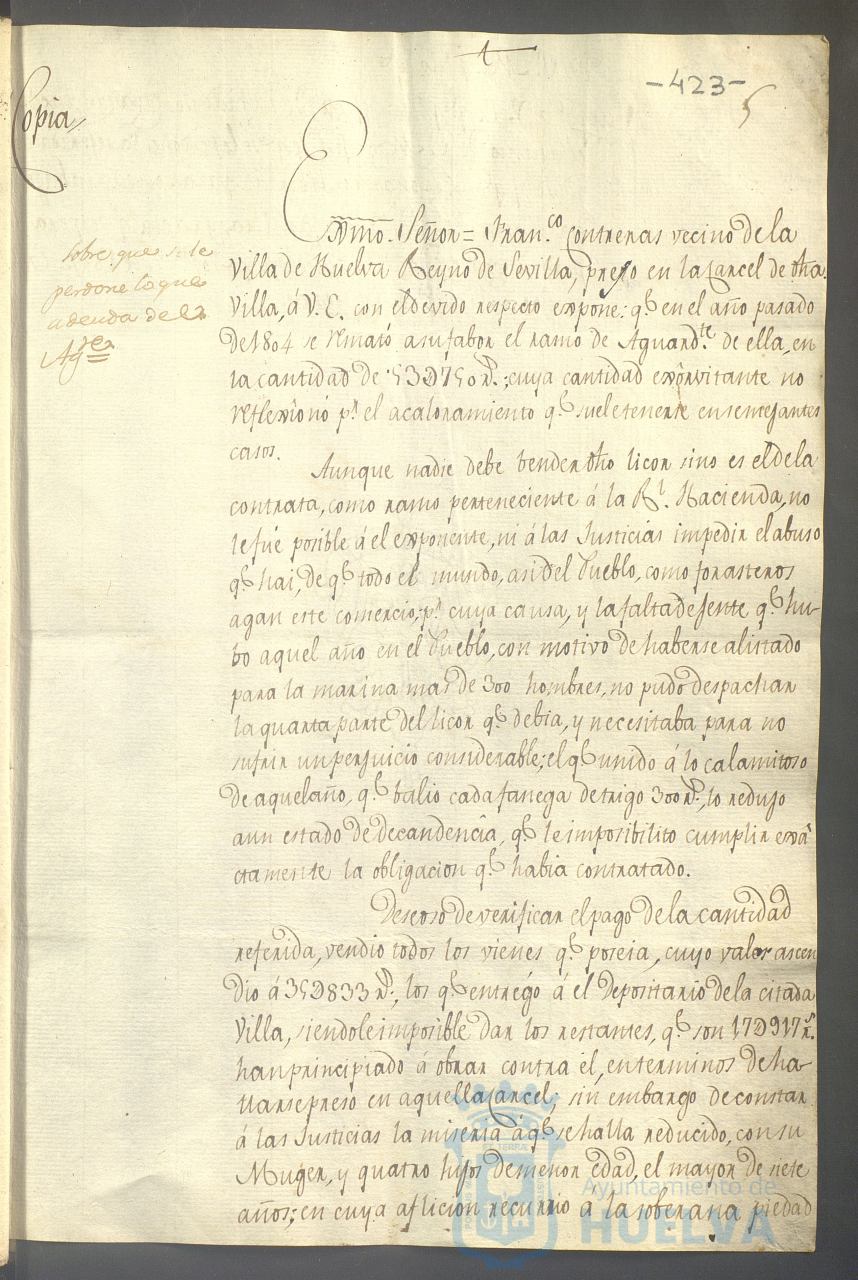 -423-
5
Copia
sobre que se le
perdone lo que
adeuda de el
Agte
Exmo. Señor = Fran.co Contreras vecino de la
Villa de Huelva Reyno de Sevilla, preso en la Carcel de dha.
Villa, á V. E. con el devido respecto expone: q.e en el año pasado
de 1804 se remató a su fabor el ramo de Aguard.te de ella, en
la cantidad de 53D750 r.s; cuya cantidad exôrvitante no
reflexîonó p.r el acaloramiento q.e suele tenerte en semejantes
casos.
Aunque nadie debe bender dho licor sino es el de la
contrata, como ramo perteneciente á la R.l Hacienda, no
le fué posible á el exponente, ni á las Justicias impedir el abuso
q.e hai, de q.e todo el mundo, asi del Pueblo, como forasteros
agan este comercio; p.r cuya causa, y la falta de Jente q.e hu-
bo aquel año en el Pueblo, con motivo de haberse alistado
para la marina mas de 300 hombres, no pudo despachar
la quarta parte del licor q.e debia, y necesitaba para no
sufrir un perjuicio considerable; el q.e unido á lo calamitoso
de aquel año, q.e balio cada fanega de trigo 300 r.s, lo redujo
a un estado de decandencia, q.e le imposibilito cumplir exâ
ctamente la obligacion q.e habia contratado.
Deseoso de verificar el pago de la cantidad
referida, vendio todos los vienes q.e poseia, cuyo valor ascen
dio á 35D833 r.s, los q.e entregó á el Depositario de la citada
Villa, siendole imposible dar los restantes, q.e son 17D917 r.s
han principiado á obrar contra él, en terminos de ha-
llarse preso en aquella Carcel; sin embargo de constar
á las Justicias la miseria á q.e se halla reducido, con su
Muger, y quatro hijos de menor edad, el mayor de siete
años; en cuya aflicion recurrio á la soberana piedad
Ayuntamiento de
HUELVA